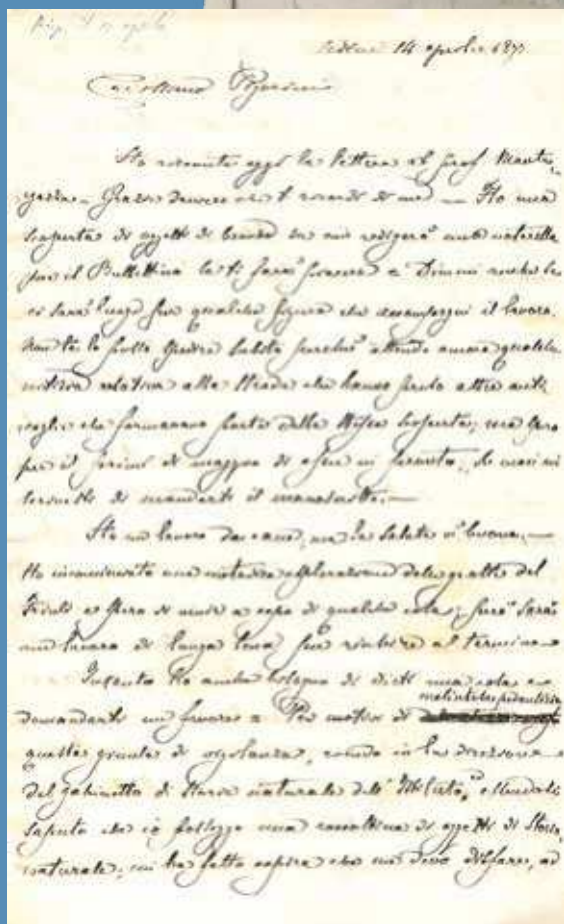 Risp. il 17 aprile
Udine 14 aprile 1877
Carissimo
Ho ricevuto oggi la lettera al prof. Mante-
gazza. Grazie davvero che ti ricordi di me — Ho una
scoperta di oggetti di bronzo da cui redigerò una noterella
per il Bullettino se ti farà piacere e Dimmi anche se
ci sarà luogo per qualche figura che accompagni il lavoro.
Non te lo posso subito perchè attendo ancora qualche
notizia relativa alla strada che hanno preso altri
oggetti che formavano parte della stessa scoperta; ma spero
per il primo di maggio di esser in permesso di
di mandarti il manoscritto.—
Ho un lavoro da cane, ma la salute è buona.—
Ho incominciato una metodica esplorazione delle grotte del
Friuli e spero di venir a capo di qualche cosa; però sarà
un lavoro di lunga lena per riuscire al termine
Intanto ho anche bisogno di dirti una cosa e
domandarti un favore — Per motivi di
malintesa pedanteria
questa giunta di vigilanza, come la direzione
del gabinetto di Storia naturale dell'Istituto, essendosi
saputo che io posseggo una raccoltina di oggetti di Storia
naturale, mi ha fatto capire che me devo disfare, od